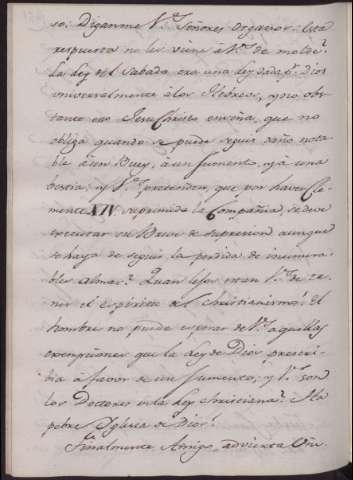 so. Diganme V.s Señores Organos: Esta
respuesta no les viene à V.s de molde?
La Ley del Sabado era una Ley dada p.r Dios
universalmente à los Hebreos, y no obs-
tante eso Jesu Christo enseña, que no
obliga quando se puede seguir daño nota-
ble à un Buey, à un Jumento, y à una
bestia; y V.s pretenden, que por haver Cle-
mente XIV suprimido la Compañia, se deve
executar su Breve de supresion aunque
se haya de seguir la perdida de inumera-
bles almas? Quan lejos estan V.s de te-
ner el espiritu del Christianismo! El
hombre no puede esperar de V.s aquellas
excempciones que la Ley de Dios prescri-
bia à favor de un Jumento, y V.s son
los Doctores en la Ley Christiana? Ha
pobre Yglesia de Dios!
Finalmente Amigo, advierta Vm.